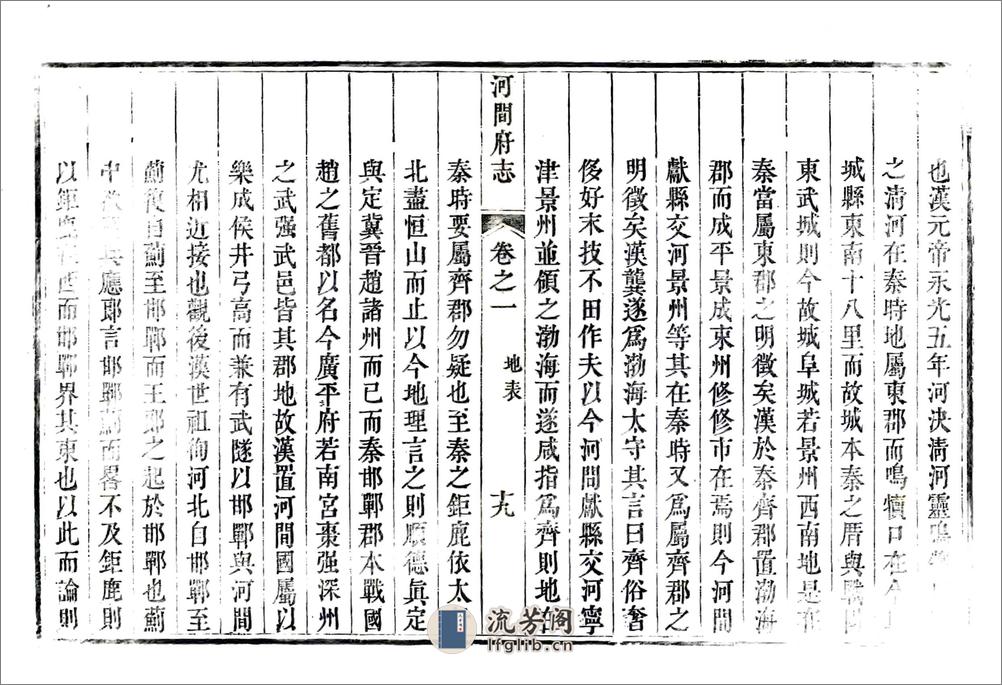 也漢元帝永光五年河決清河靈鳴
之清河在秦時地屬東郡而鳴犢口在今
城縣東南十八里而故城本秦之厝與戰國
東武城則今故城阜城若景州西南地是在
秦當屬東郡之明徵矣漢於秦齊郡置渤海
郡而成平景成東州修修市在焉則今河間
獻縣交河景州等其在秦時又爲屬齊郡之
明徵矣漢龔遂爲渤海太守其言曰齊俗奢
侈好末技不田作夫以今河間獻縣交河寧
津景州並領之渤海而遂咸指爲齊則地在
河間府志
卷之一
地表
十九
秦時要屬齊郡勿疑也至秦之鉅鹿依太
北盡恒山而止以今地理言之則順德眞定
與定冀晉趙諸州而已而秦邯鄲郡本戰國
趙之舊都以名今廣平府若南宮棗强深州
之武强武邑皆其郡地故漢置河間國屬以
樂成侯井弓高而兼有武隧以邯鄲與河間
尤相近接也觀後漢世祖徇河北自邯鄲至
薊復自薊至邯鄲而王郎之起於邯鄲也薊
中 應郎言邯鄲薊而畧不及鉅鹿則
以鉅鹿 西而邯鄲界其東也以此而論則
流芳阁
lfglib.cn